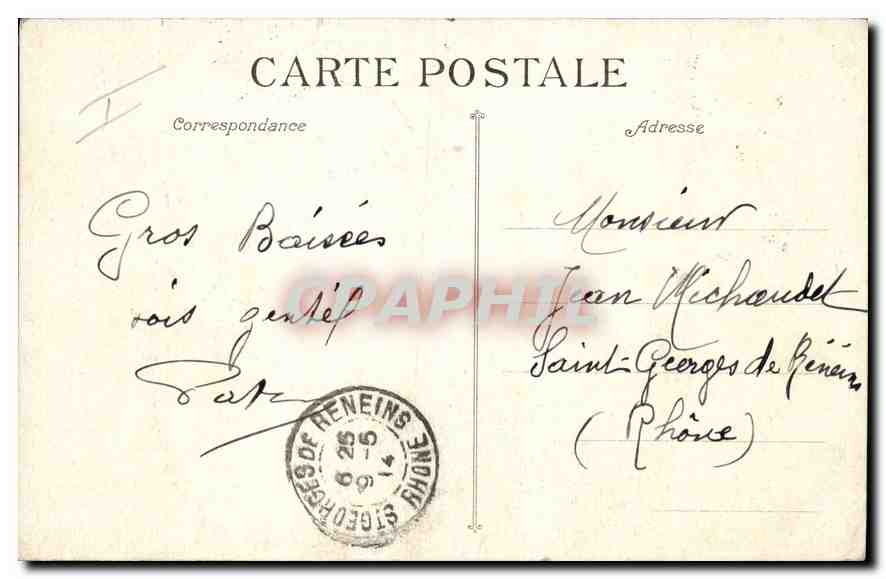 CARTE POSTALE
Correspondance
Adresse
I
Gros Baisées
sois gentil
Monsieur
Jean Michaudet
Saint-Georges de Réneins
(Rhône)
CPAPHIL
ST GEORGES DE RENEINS RHONE
6 25
9 -5
14